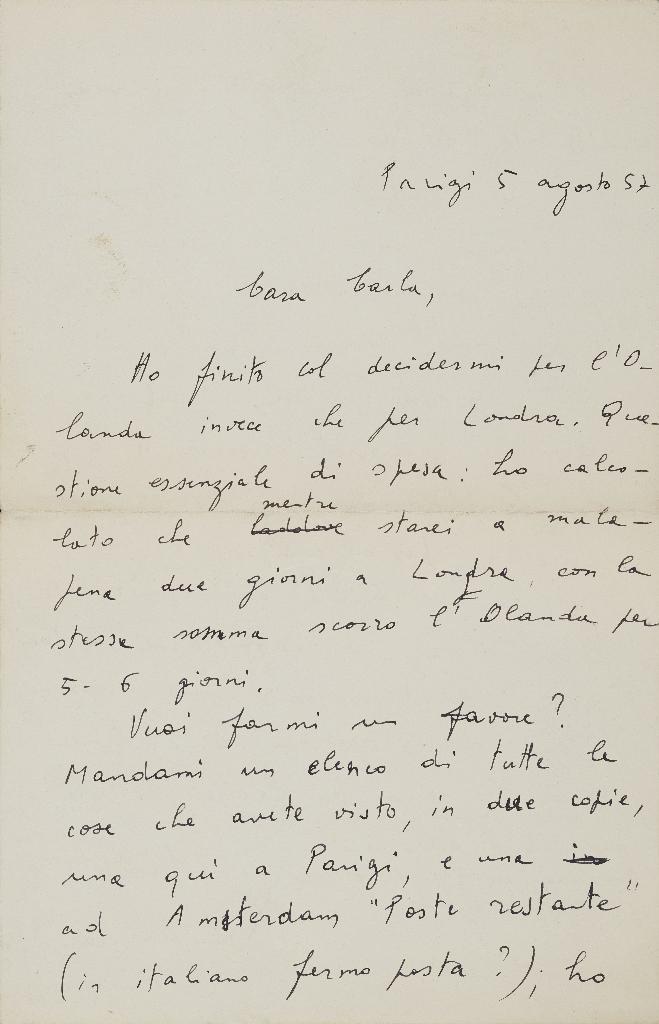 Parigi 5 agosto 57
Cara Carla,
Ho finito col decidermi per l'O-
landa invece che per Londra. Que-
stione essenziale di spesa: ho calco-
mentre
lato che laddove starei a mala-
pena due giorni a Londra, con la
stessa somma scorro l'Olanda per
5-6 giorni.
Vuoi farmi un favore?
Mandami un elenco di tutte le
cose che avete visto, in due copie,
una qui a Parigi, e una in
ad Amsterdam "Poste restante"
(in italiano fermo posta?); ho